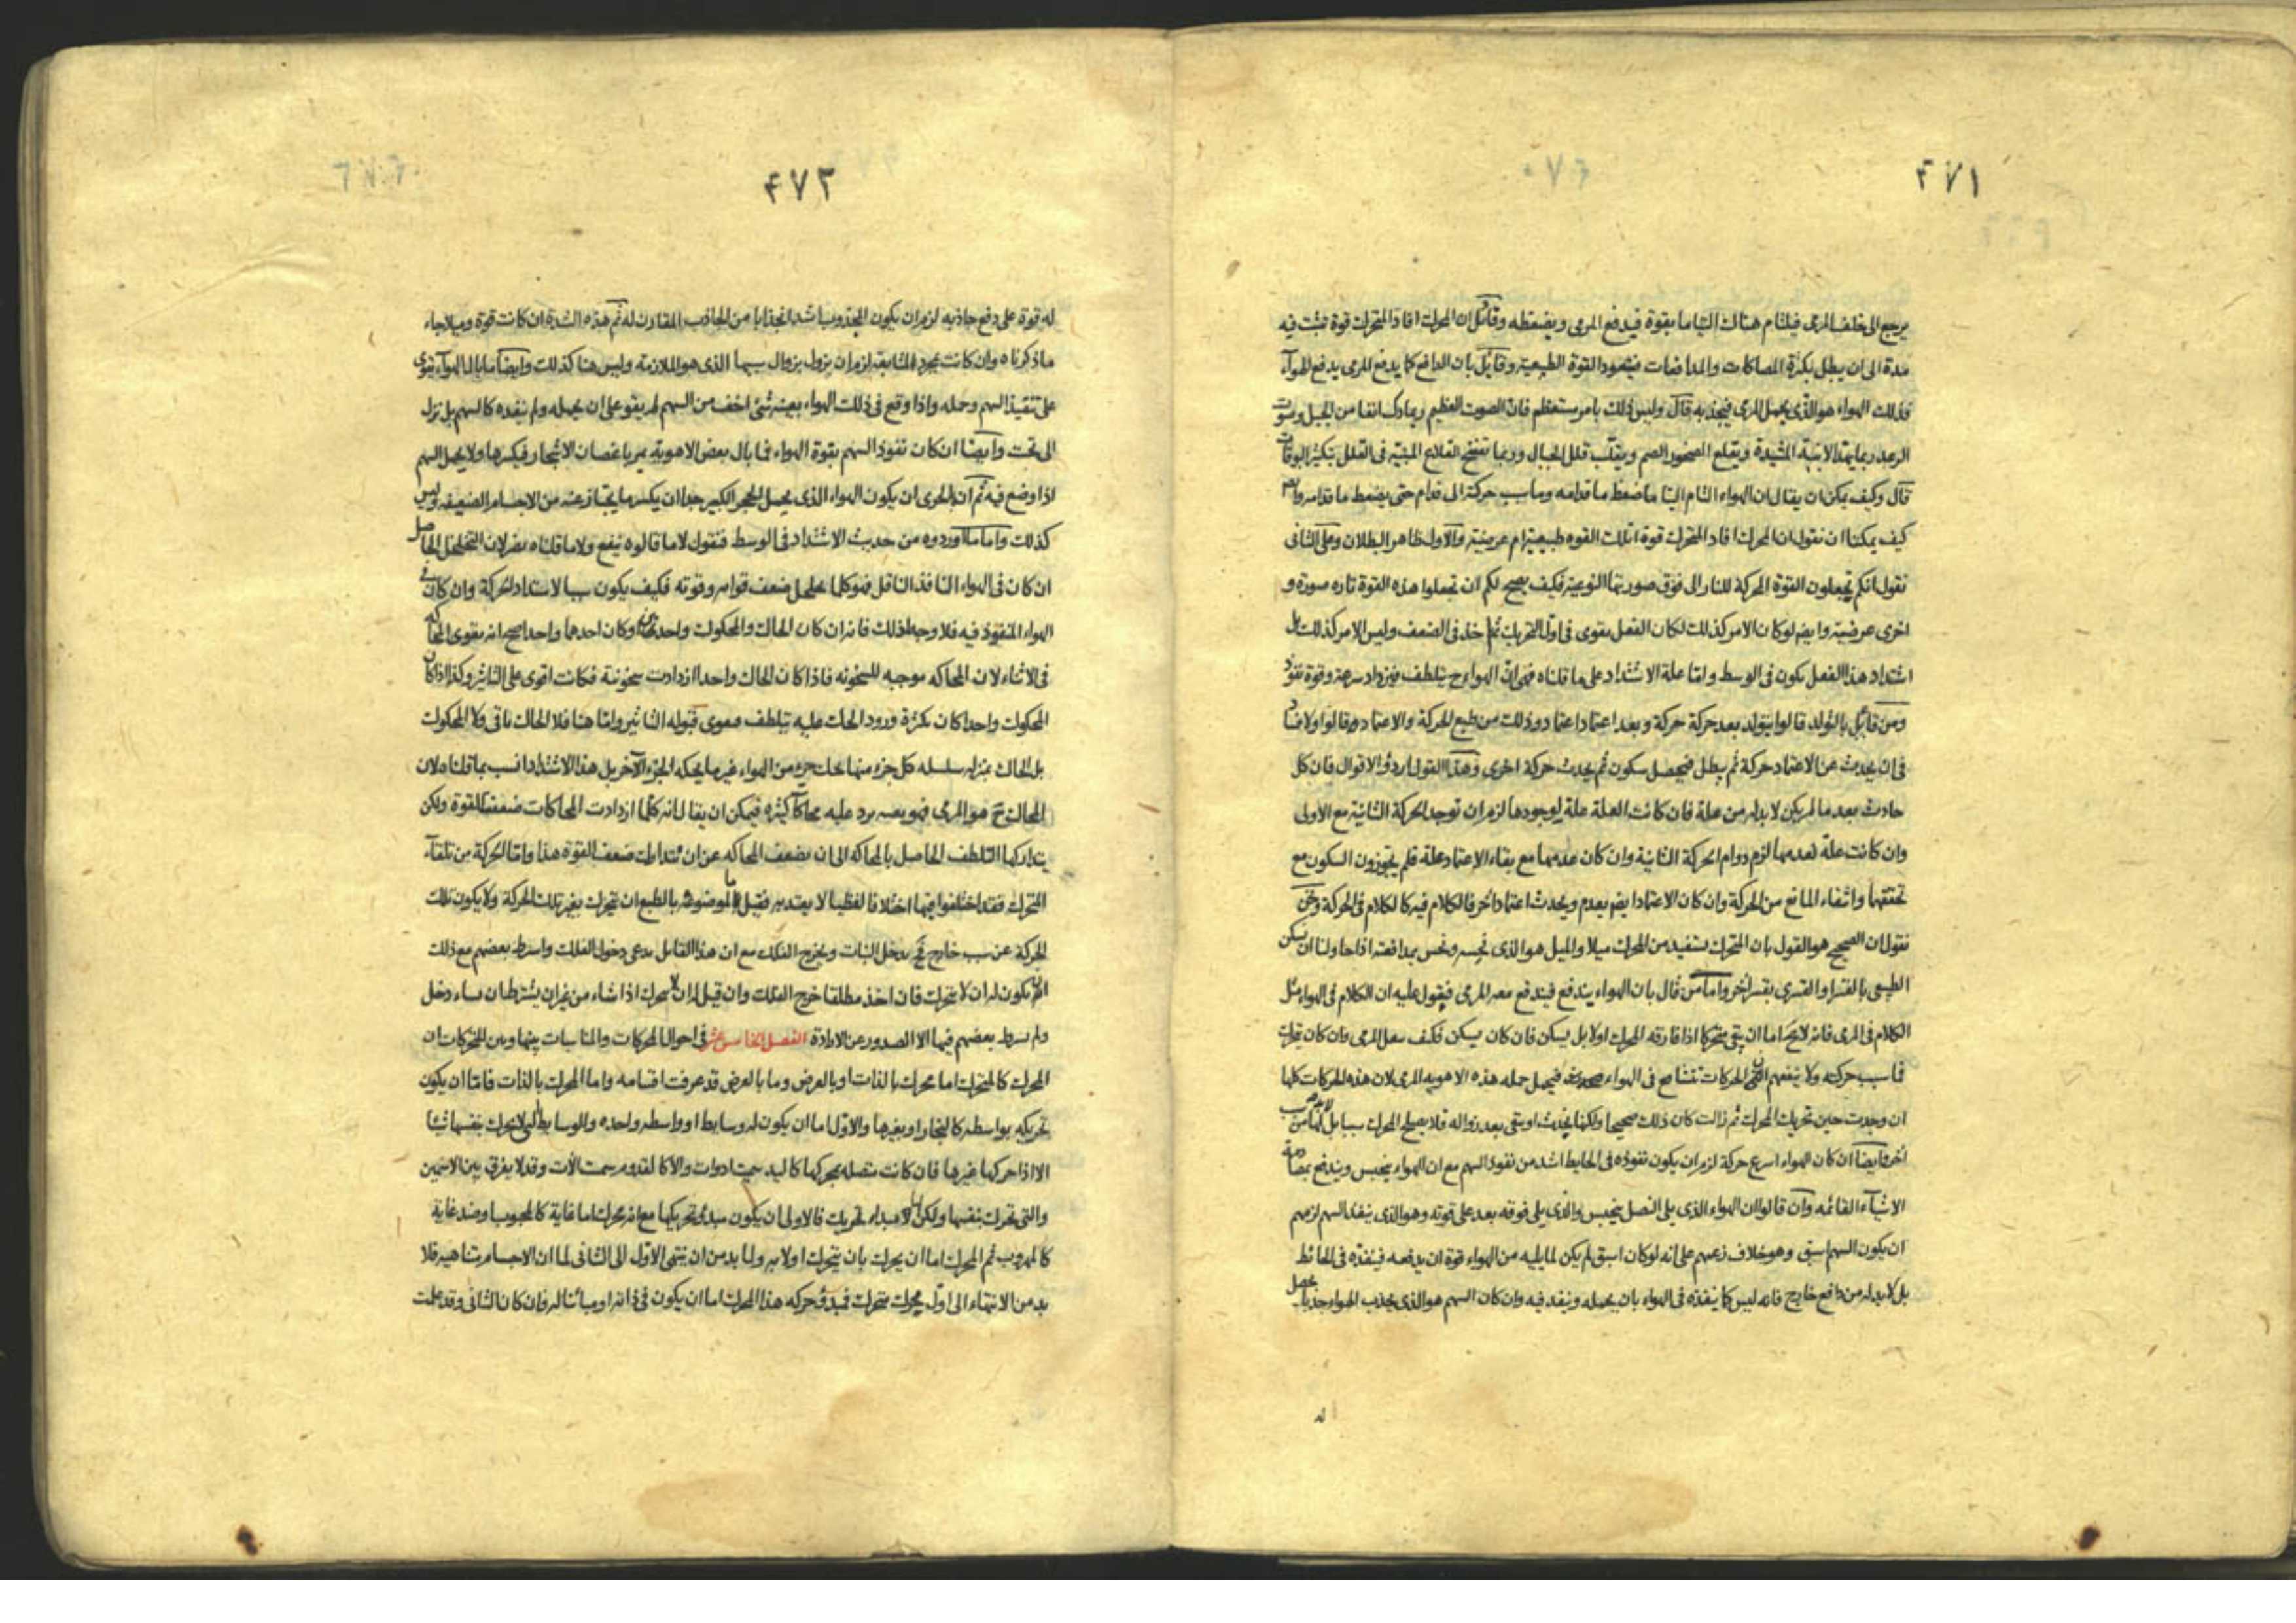 ٤٧١
يرجع الى خلف المرمى فيلتام هناك التياما بقوة فيدفع المرمى ويضغطه وقائل ان المحرك افاد المتحرك قوة تثبت فيه
مدة الى ان يبطل بكثرة المصاكات والمدافعات فيعود القوة الطبيعية وقائل بان الدافع كما يدفع المرمى يدفع الهوآء
فذلك الهواء هو الذى يحمل المرمى فيجذبه قال وليس ذلك بامر مستعظم فان الصوت العظيم ربما دك انفا من الجبل وصوت
الرعد ربما يهد الابنية المشيدة ويقلع الصخور الصم ويقلب قلل الجبال وربما تفتح القلاع المبنية فى القلل بتكثير البوقات
قال وكيف يمكن ان يقال ان الهواء التام التياما ضغط ما قدامه وما سبب حركته الى قدام حتى يضغط ما قدامه وام
كيف يمكننا ان نقول ان المحرك افاد المتحرك قوة اتلك القوه طبيعية ام عرضية والاول ظاهر البطلان وعلى الثانى
نقول انكم تجعلون القوة المحركة للنار الى فوق صورتها النوعية فكيف يصح لكم ان تجعلوا هذه القوة تاره صورة و
اخرى عرضية وايضم لو كان الامر كذلك لكان الفعل يقوى فى اول التحريك ثم اخذ فى الضعف وليس الامر كذلك بل
اشتداد هذا الفعل يكون فى الوسط واما علة الاشتداد على ما قلناه فهى ان الهواء ح يتلطف فيزداد سرعة وقوة نفوذ
ومن قائل بالتولد قالوا يتولد بعد حركة حركة وبعد اعتماد اعتماد وذلك من طبع الحركة والاعتماد وقالوا ولا فساد
فى ان يحدث عن الاعتماد حركة ثم يبطل فيحصل سكون ثم يحدث حركة اخرى وهذا القول اردؤ الاقوال فان كل
حادث بعد ما لم يكن لا بد له من علة فان كانت العلة علة لوجودها لزم ان توجد الحركة الثانية مع الاولى
وان كانت علة لعدمها لزم دوام الحركة الثانية وان كان عدمها مع بقاء الاعتماد علة فلم يجوزون السكون مع
تحققها وانتفاء المانع من الحركة وان كان الاعتماد ايضم يعدم ويحدث اعتماد آخر فالكلام فيه كالكلام فى الحركة ونحن
نقول ان الصحيح هو القول بان المتحرك يستفيد من المحرك ميلا والميل هو الذى نحسه ونحس بمدافعته اذا حاولنا ان نسكن
الطبيعى بالقسر او القسرى بقسر آخر واما من قال بان الهواء يندفع فيندفع معه المرمى فيقول عليه ان الكلام فى الهواء مثل
الكلام فى المرمى فانه لا يخ اما ان يبقى متحركا اذا فارقه المحرك اولا بل يسكن فان كان يسكن فكيف يحمل المرمى وان كان تحرك
فما سبب حركته ولا ينفعهم ان الحركات تتشافع فى الهواء فيحمل حمله هذه الاهويه المرمى لان هذه الحركات كلها
ان وجدت حين تحريك المحرك ثم زالت كان ذلك صحيحا ولكنها يحدث او يبقى بعد زواله فلا يصلح المحرك سببا بل لابد من سبب
آخر وايضا ان كان الهواء اسرع حركة لزم ان يكون نفوذه فى الحايط اشد من نفوذ السهم مع ان الهواء يحتبس ويندفع بمصادمة
الاشيآء القائمه وان قالوا ان الهواء الذى يلى النصل يحتبس والذى يلى فوقه بعد على قوته وهو الذى ينفذ السهم لزمهم
ان يكون السهم اسبق وهو خلاف زعمهم على انه لو كان اسبق لم يكن لما يليه من الهواء قوة ان يدفعه فينفذه فى الحائط
بل لا بد له من دافع خارج فانه ليس كما ينفذه فى الهواء بان يحمله وينفد فيه وان كان السهم هو الذى يجذب الهواء جذبا يحصل
له
٤٧٢
له قوة على دفع جاذبه لزم ان يكون المجذوب اشد انجذابا من الجاذب المقارن له ثم هذه الشدة ان كانت قوة وميلا جاء
ما ذكرناه وان كانت مجرد المشايعة لزم ان يزول بزوال سببها الذى هو الملازمة وليس هنا كذلك وايضا ما بال الهوآء يقوى
على تنفيذ السهم وحمله واذا وقع فى ذلك الهواء بعينه شئ اخف من السهم لم يقو على ان يحمله ولم ينفده كالسهم بل نزل
الى تحت وايضا ان كان نفوذ السهم بقوة الهواء فما بال بعض الاهوية يمر باغصان الاشجار فيكسرها ولا يحمل السهم
اذا وضع فيه ثم ان بالحرى ان يكون الهواء الذى يحمل الحجر الكبير جدا ان يكسر ما يجتاز عنه من الاجسام الضعيفه وليس
كذلك واما ما اوردوه من حديث الاشتداد فى الوسط فنقول لا ما قالوه ينفع ولا ما قلناه يضر لان التخلخل الحاصل
ان كان فى الهواء النافذ الناقل فهو كلما تخلخل ضعف قوامه وقوته فكيف يكون سببا لاشتداد الحركة وان كان فى
الهواء المنفوذ فيه فلا وجه لذلك فانه ان كان الحاك والمحكوك واحدا وكان احدهما واحدا صح انه يقوى الحاك
فى الاثناء لان المحاكه موجبه للسخونه فاذا كان الحاك واحدا ازدادت سخونته فكانت اقوى على التاثير وكذا اذا كان
المحكوك واحدا كان بكثرة ورود الحاك عليه يتلطف فيقوى قبوله التاثير واما هنا فلا الحاك باقى ولا المحكوك
بل الحاك بمنزله سلسله كل جزء منها يحك جزء من الهواء غير ما يحكه الجزء الآخر بل هذا الاشتداد انسب بما قلناه لان
الحاك ح هو المرمى فهو بعينه يرد عليه محاكات كثيره فيمكن ان يقال انه كلما ازدادت المحاكات ضعفت القوة ولكن
يتداركها التلطف الحاصل بالمحاكه الى ان يضعف المحاكه عن ان يتدارك ضعف القوة هذا واما الحركة من تلقآء
المتحرك فقد اختلفوا فيها اختلافا لفظيا لا يعتد به فقيل الموضوع بالطبع ان يتحرك بغير تلك الحركة ولا يكون تلك
الحركة عن سبب خارج ثم يدخل النبات ويخرج الفلك مع ان هذا القائل يدعى دخول الفلك واشرط بعضهم مع ذلك
ان يكون له ان لا يتحرك فان اخذ مطلقا خرج الفلك وان قيل له ان لا يتحرك اذا شاء من غير ان يشترط ان يشاء دخل
ولم يشرط بعضهم فيها الا الصدور عن الارادة الفصل الخامس عشر فى احوال المحركات والمناسبات بينها وبين المتحركات ان
المحرك كالمتحرك اما محرك بالذات او بالعرض وما بالعرض قد عرفت اقسامه واما المحرك بالذات فاما ان يكون
تحريكه بواسطة كالنجار او بغيرها والاول اما ان يكون له وسايط او واسطه واحده والوسايط لا يتحرك بنفسها شيئا
الا اذا حركها غيرها فان كانت متصله بمحركها كاليد سميت ادوات والا كالقدوم سميت الآت وقد لا يفرق بين الاسمين
والتى تتحرك بنفسها ولكن لا مبداء تحريك فالاولى ان يكون مبدئ تحريكها مع انه محرك اما غاية كالمحبوب او ضد غاية
كالمهروب ثم المحرك اما ان يحرك بان يتحرك او لا به ولا بد من ان ينتهى الاول الى الثانى لما ان الاجسام متناهيه فلا
بد من الانتهاء الى اول محرك متحرك فمبدؤ حركه هذا المحرك اما ان يكون فى ذاته او مبائنا له فان كان الثانى وقد علمت